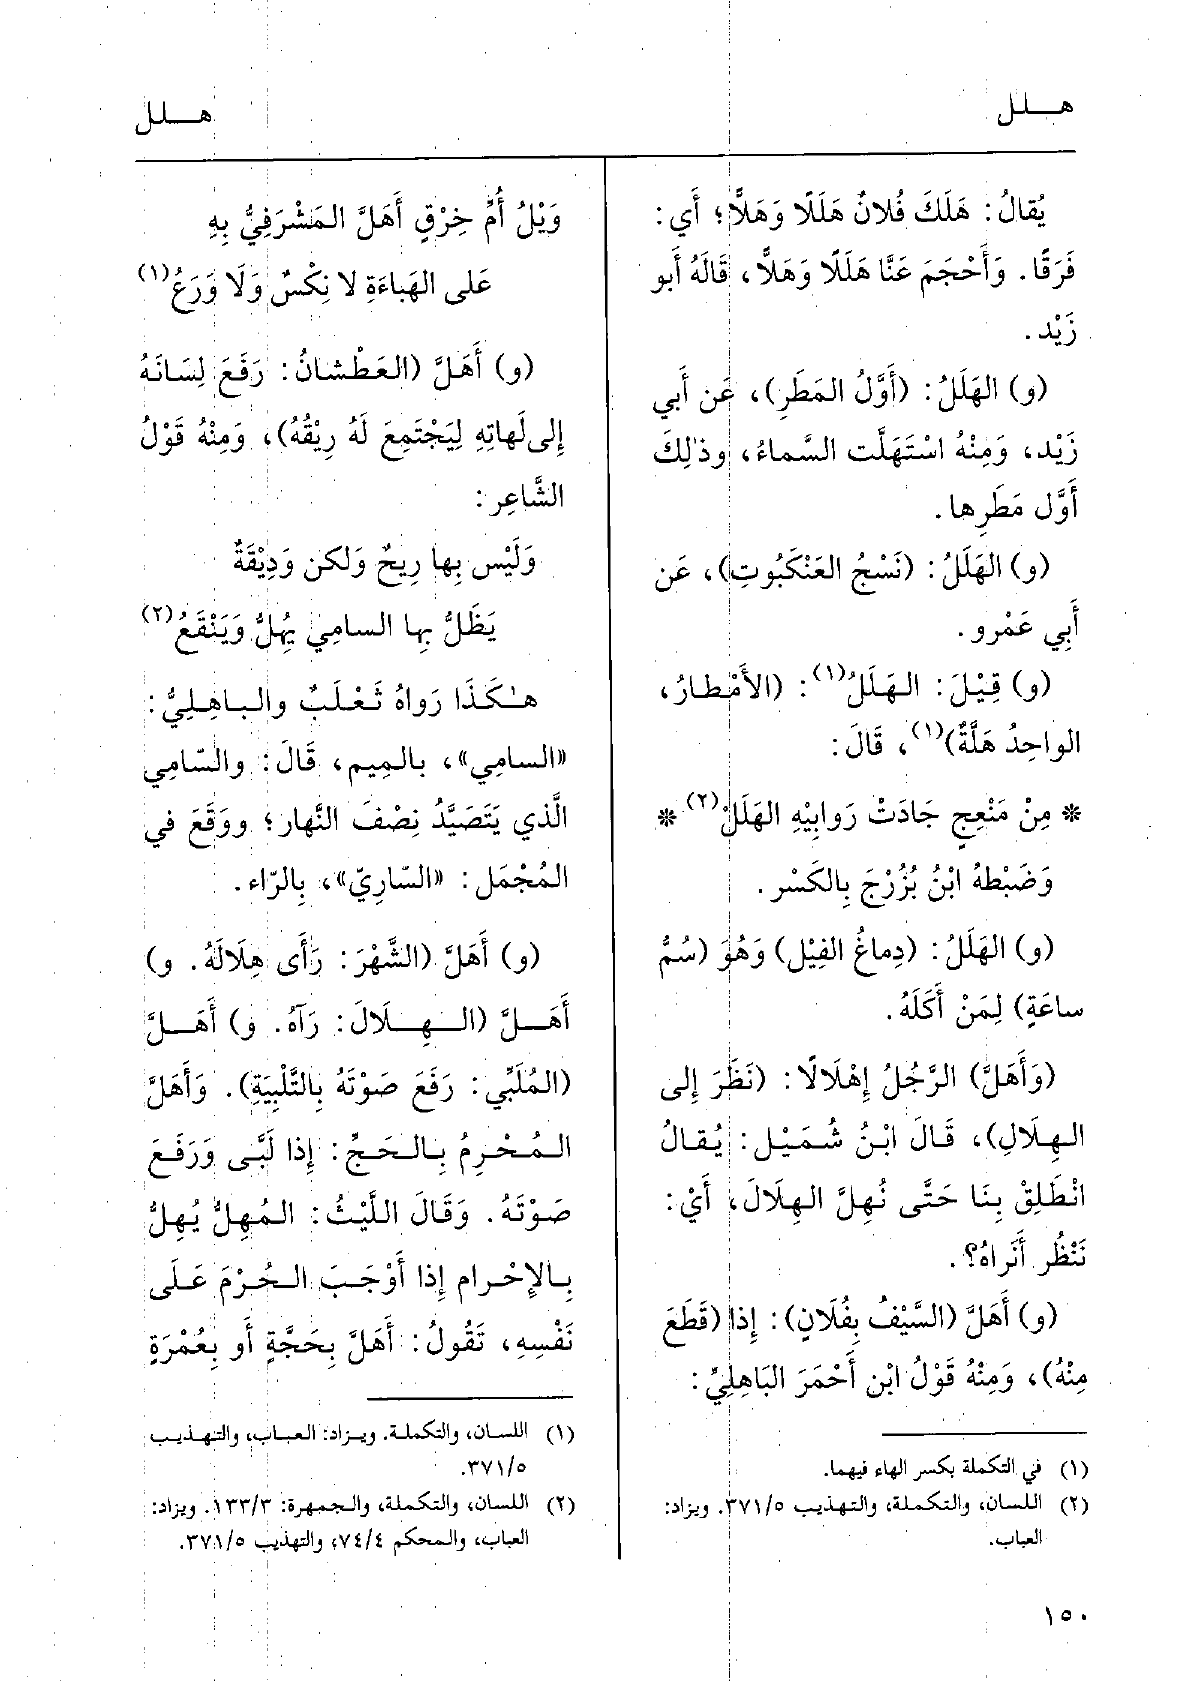 هلل
هلل
يُقالُ: هَلَكَ فُلانٌ هَلَلًا وَهَلًّا؛ أَي:
فَرَقًا. وَأَحْجَمَ عَنَّا هَلَلًا وَهَلًّا، قَالَهُ أبو
زَيْد.
(و) الهَلَلُ: (أَوَّلُ المَطَرِ)، عَن أَبي
زَيْد، وَمِنْهُ اسْتَهَلَّت السَّماءُ، وذٰلِكَ
أَوَّل مَطَرِها.
(و) الهَلَلُ: (نَسْجُ العَنْكَبُوتِ)، عَن
أَبِي عَمْرو.
(و) قِيْلَ: الهَلَلُ(١): (الأَمْطارُ،
الواحِدُ هَلَّةٌ)(١)، قَالَ:
* مِنْ مَنْعِجٍ جَادَتْ رَوابِيْهِ الهَلَلْ(٢) *
وَضَبْطهُ ابْنُ بُزُرْجَ بِالكَسْر.
(و) الهَلَلُ: (دِماغُ الفِيْل) وَهُوَ (سُمُّ
ساعَةٍ) لِمَنْ أَكَلَهُ.
(وَأَهَلَّ) الرَّجُلُ إِهْلَالًا: (نَظَرَ إِلى
الهِلَالِ)، قَالَ ابْنُ شُمَيْل: يُقالُ
انْطَلِقْ بِنَا حَتَّى نُهِلَّ الهِلَالَ، أَيْ:
نَنْظُر أَنَراهُ؟.
(و) أَهَلَّ (السَّيْفُ بِفُلَانٍ): إِذا (قَطَعَ
مِنْهُ)، وَمِنْهُ قَوْلُ ابْن أَحْمَرَ البَاهِلِيِّ:
(١) في التكملة بكسر الهاء فيهما.
(٢) اللسان، والتكملة، والتهذيب ٣٧١/٥. ويزاد:
العباب.
وَيْلُ أُمِّ خِرْقٍ أَهَلَّ المَشْرَفِيُّ بِهِ
عَلى الهَباءَةِ لا نِكْسٌ وَلَا وَرَعُ(١)
(و) أَهَلَّ (العَطْشانُ: رَفَعَ لِسَانَهُ
إِلى لَهاتِهِ لِيَجْتَمِعَ لَهُ رِيْقُهُ)، وَمِنْهُ قَوْلُ
الشَّاعِر:
وَلَيْس بِها رِيحٌ وَلكن وَدِيْقَةٌ
يَظَلُّ بِها السامِي يُهِلُّ وَيَنْقَعُ(٢)
هٰكَذَا رَواهُ ثَعْلَبٌ والباهِلِيُّ:
«السامِي»، بالمِيم، قَالَ: والسّامِي
الَّذي يَتَصَيَّدُ نِصْفَ النَّهار؛ ووَقَعَ في
المُجْمَل: «السّارِيّ»، بِالرّاء.
(و) أَهَلَّ (الشَّهْرَ: رَأَى هِلَالَهُ. و)
أَهَلَّ (الهِلَالَ: رَآهُ. و) أَهَلَّ
(المُلَبِّي: رَفَعَ صَوْتَهُ بِالتَّلْبِيَةِ). وَأَهَلَّ
المُحْرِمُ بِالحَجِّ: إِذا لَبَّى وَرَفَعَ
صَوْتَهُ. وَقَالَ اللَّيْثُ: المُهِلُّ يُهِلُّ
بِالإِحْرام إِذا أَوْجَبَ الحُرْمَ عَلَى
نَفْسِهِ، تَقُولُ: أَهَلَّ بِحَجَّةٍ أَو بِعُمْرَةٍ
(١) اللسان، والتكملة. ويزاد: العباب، والتهذيب
٣٧١/٥.
(٢) اللسان، والتكملة، والجمهرة: ١٣٣/٣. ويزاد:
العباب، والمحكم ٧٤/٤، والتهذيب ٣٧١/٥.
١٥٠